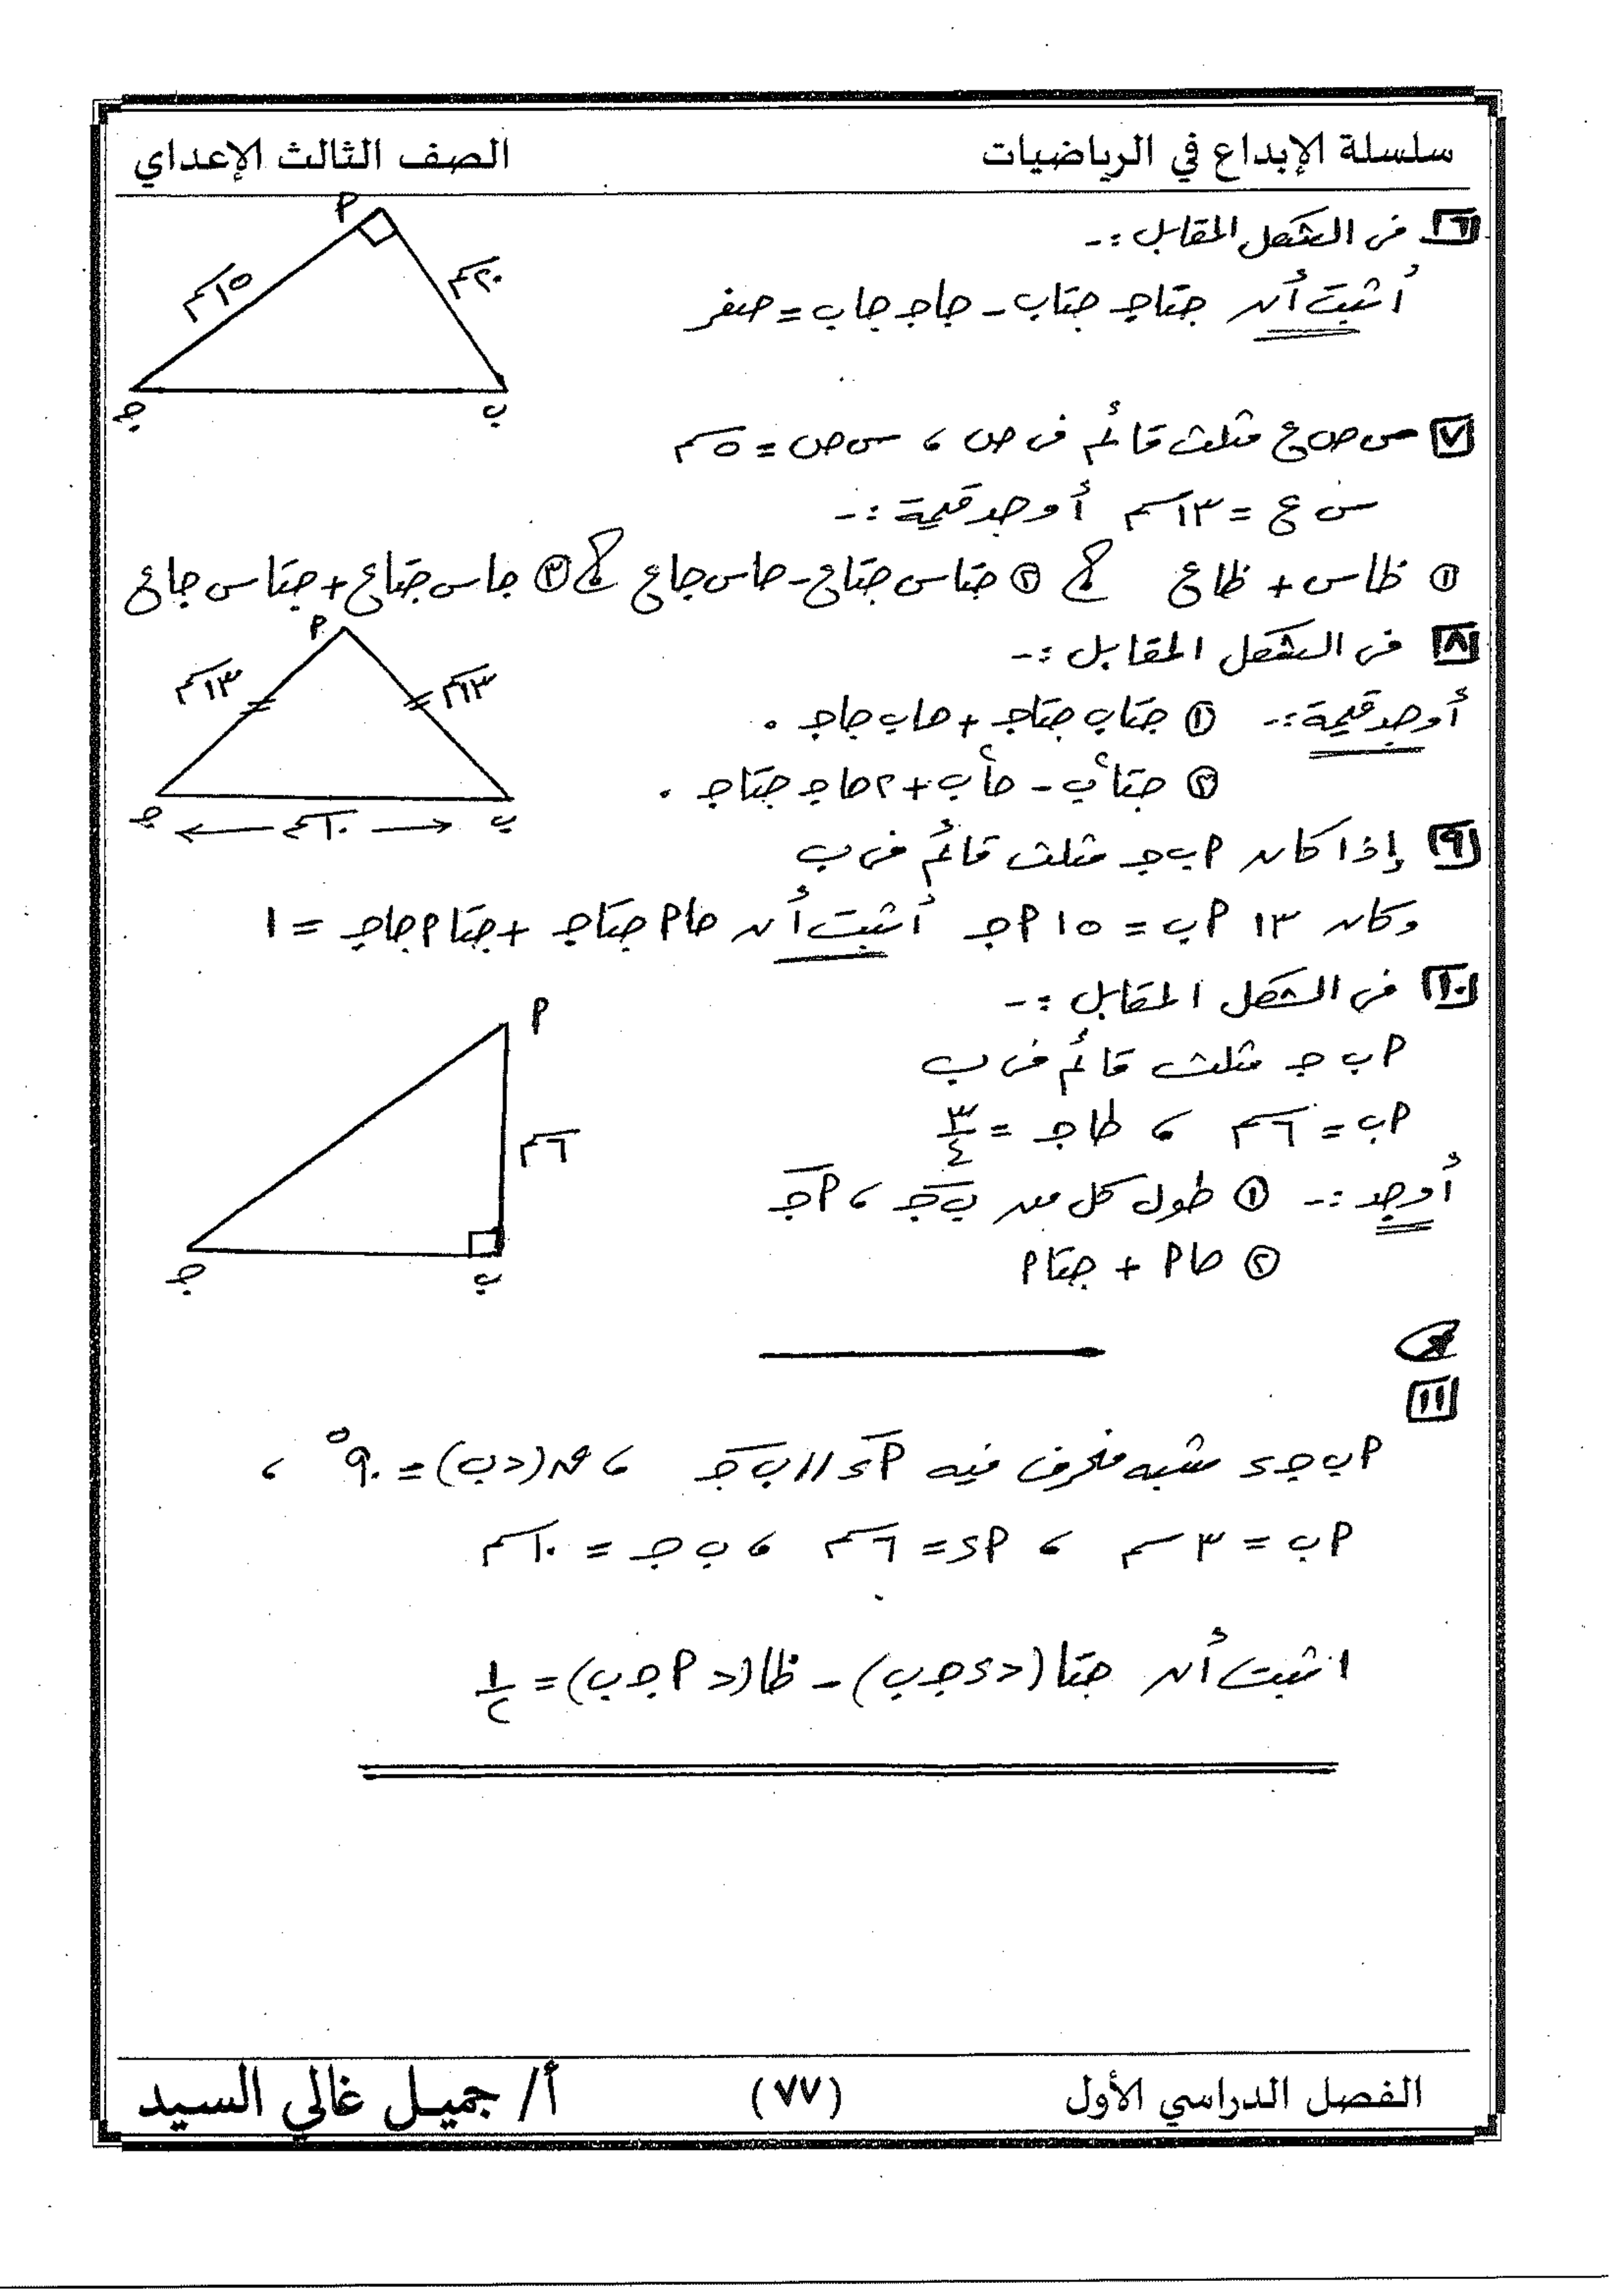 سلسلة الإبداع في الرياضيات
الصف الثالث الإعداي
٦ فى الشكل المقابل :-
أثبت أن جتاجـ جتاب - جاجـ جاب = صفر
٢
١٥سم
٢٠سم
جـ
ب
٧ س ص ع مثلث قائم فى ص ، س ص = ٥سم
س ع = ١٣سم أوجد قيمة :-
١ ظاس + ظاع ٢ جتاس جتاع - جاس جاع ٣ جاس جتاع + جتاس جاع
٨ فى الشكل المقابل :-
٢
١٣سم
١٣سم
جـ
١٠سم
ب
أوجد قيمة :- ١ جتاب جتاجـ + جاب جاجـ .
٢ جتا٢ب - جا٢ب + ٢جاجـ جتاجـ .
٩ إذا كان ٢ب جـ مثلث قائم فى ب
وكان ١٣ ٢ب = ١٥ ٢جـ أثبت أن جا٢ جتاجـ + جتا٢ جاجـ = ١
١٠ فى الشكل المقابل :-
٢
٦سم
جـ
ب
٢ب جـ مثلث قائم فى ب
٢ب = ٦سم ، ظاجـ = ٣/٤
أوجد :- ١ طول كل من ب جـ ، ٢جـ
٢ جا٢ + جتا٢
١١
٢ب جـ ء شبه منحرف فيه ٢ء // ب جـ ، ق(دب) = ٩٠° ،
٢ب = ٣سم ، ٢ء = ٦سم ، ب جـ = ١٠سم
اثبت أن جتا(دء جـ ب) - ظا(د٢جـ ب) = ١/٢
الفصل الدراسي الأول
(٧٧)
أ/ جميل غالي السيد